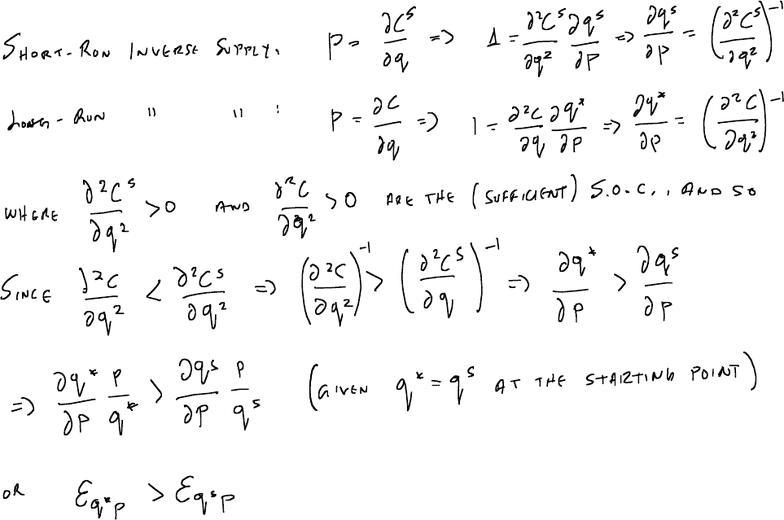 SHORT-RUN INVERSE SUPPLY: P = ∂C^s/∂q => 1 = ∂²C^s/∂q² ∂q^s/∂P => ∂q^s/∂P = (∂²C^s/∂q²)^-1
LONG-RUN " " : P = ∂C/∂q => 1 = ∂²C/∂q ∂q*/∂P => ∂q*/∂P = (∂²C/∂q²)^-1
WHERE ∂²C^s/∂q² > 0 AND ∂²C/∂q² > 0 ARE THE (SUFFICIENT) S.O.C., AND SO
SINCE ∂²C/∂q² < ∂²C^s/∂q² => (∂²C/∂q²)^-1 > (∂²C^s/∂q)^-1 => ∂q*/∂P > ∂q^s/∂P
=> ∂q*/∂P P/q* > ∂q^s/∂P P/q^s (GIVEN q* = q^s AT THE STARTING POINT)
OR Ɛ_q*P > Ɛ_q^sP